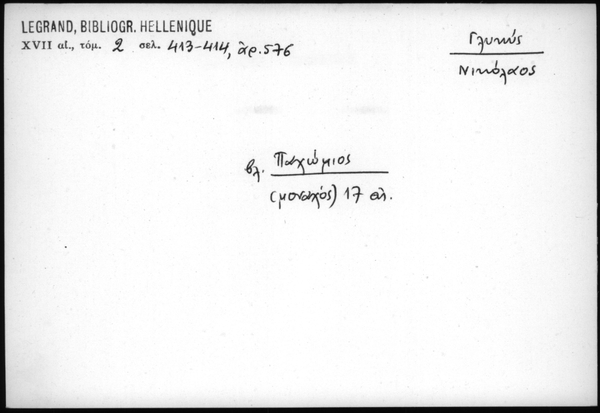 LEGRAND, BIBLIOGR. HELLENIQUE
XVII αἰ., τόμ. 2 σελ. 413-414, ἀρ. 576
Γλυκύς
Νικόλαος
βλ. Παχώμιος
(μοναχός) 17 αι.